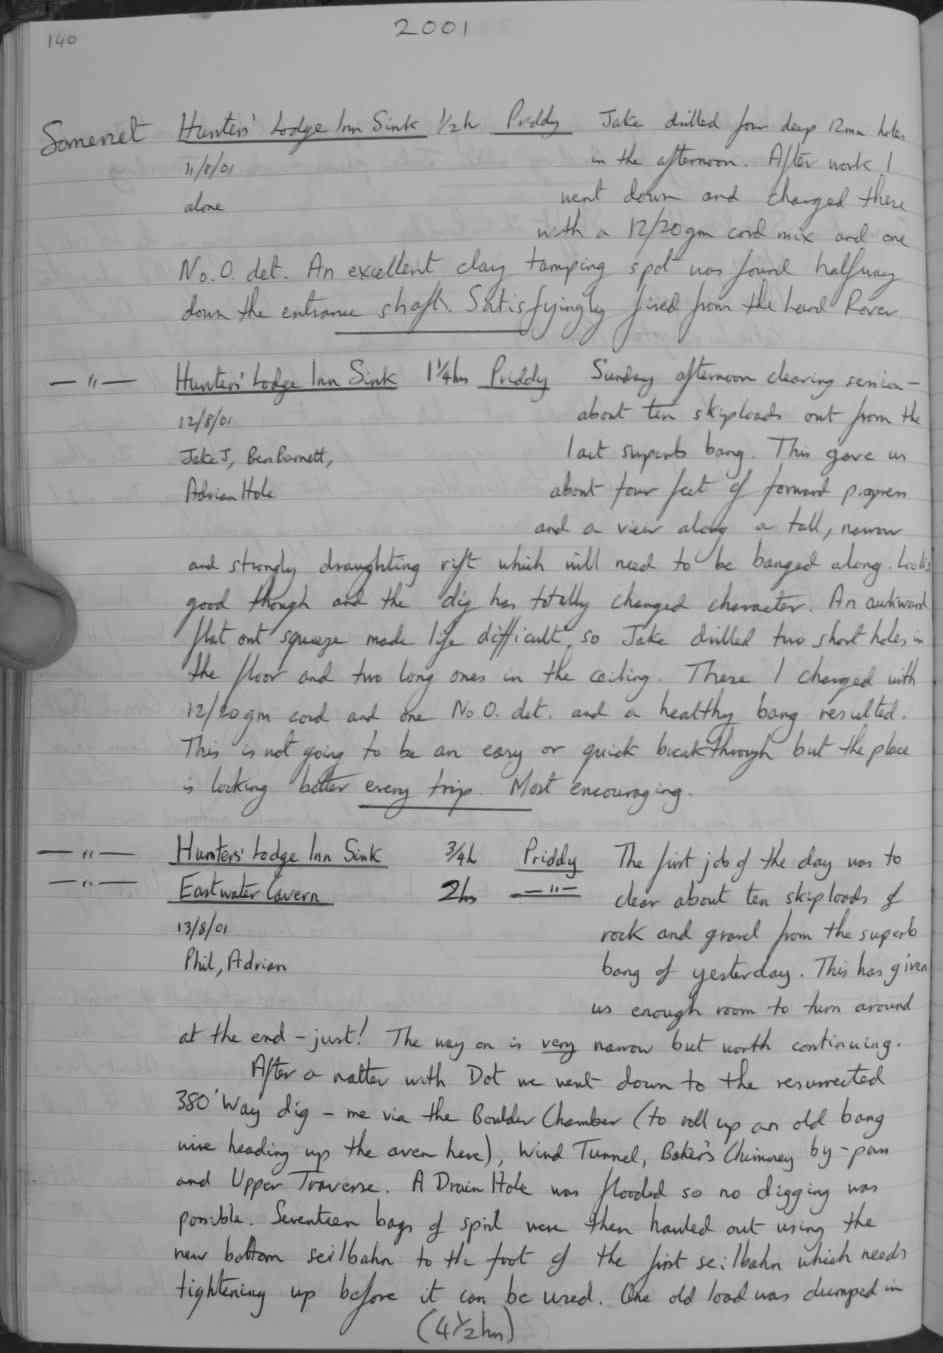 140
2001
Somerset Hunters' Lodge Inn Sink 1/2h Priddy Jake drilled four deep 12mm holes
11/8/01 in the afternoon. After work I
alone went down and charged these
with a 12/20gm cord mix and one
No. 0. det. An excellent clay tamping spot was found halfway
down the entrance shaft. Satisfyingly fired from the Land Rover
— " — Hunters' Lodge Inn Sink 1 1/4hrs Priddy Sunday afternoon clearing session -
12/8/01 about ten skiploads out from the
Jake J, Ben Barnett, last superb bang. This gave us
Adrian Hole about four feet of forward progress
and a view along a tall, narrow
and strongly draughting rift which will need to be banged along. Looks
good though and the dig has totally changed character. An awkward
flat out squeeze made life difficult, so Jake drilled two short holes in
the floor and two long ones in the ceiling. These I charged with
12/20gm cord and one No 0. det. and a healthy bang resulted.
This is not going to be an easy or quick breakthrough but the place
is looking better every trip. Most encouraging.
— " — Hunters' Lodge Inn Sink 3/4h Priddy The first job of the day was to
— " — Eastwater Cavern 2hrs — " — clear about ten skiploads of
13/8/01 rock and gravel from the superb
Phil, Adrian bang of yesterday. This has given
us enough room to turn around
at the end - just! The way on is very narrow but worth continuing.
After a natter with Dot we went down to the resurrected
380' Way dig - me via the Boulder Chamber (to roll up an old bang
wire heading up the aven here), Wind Tunnel, Baker's Chimney by-pass
and Upper Traverse. A Drain Hole was flooded so no digging was
possible. Seventeen bags of spoil were then hauled out using the
new bottom seilbahn to the foot of the first seilbahn which needs
tightening up before it can be used. One old load was dumped in
(4 1/2hrs)